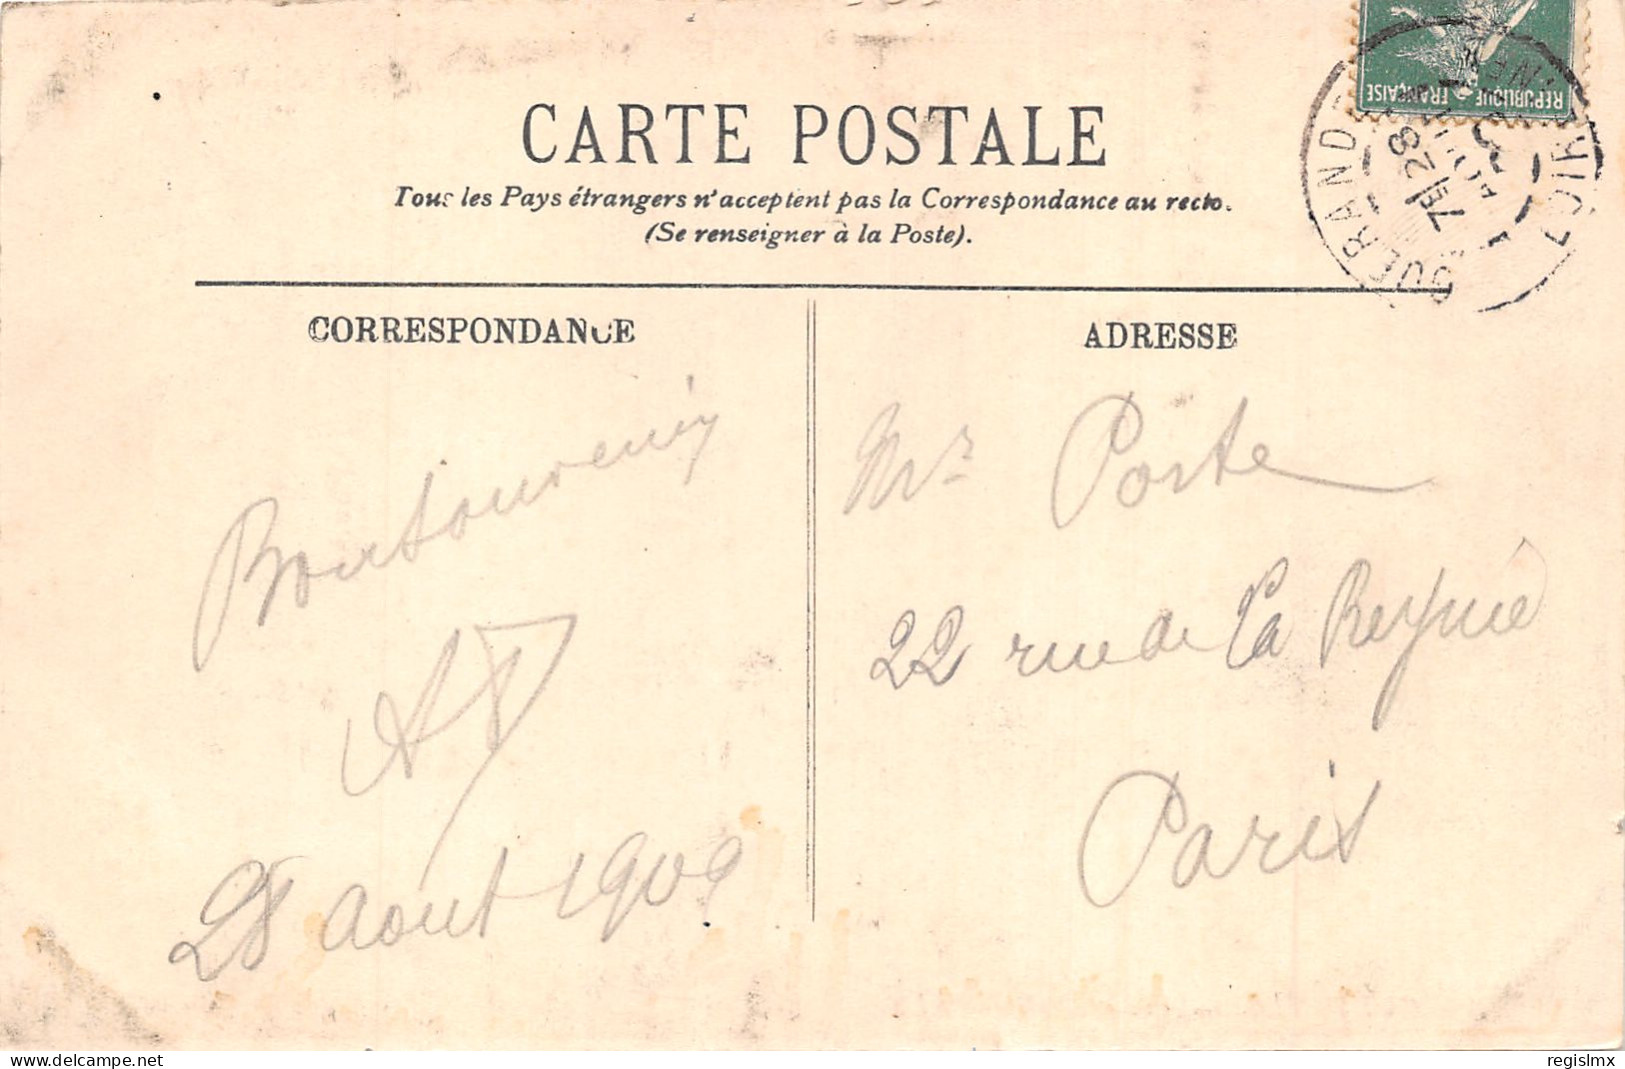 CARTE POSTALE
Tous les Pays étrangers n'acceptent pas la Correspondance au recto.
(Se renseigner à la Poste).
CORRESPONDANCE
ADRESSE
REPUBLIQUE FRANÇAISE
GUERANDE
7E 28
LOIRE
Bon souvenir
28 Aout 1909
Mr Porte
22 rue de la Reynie
Paris
www.delcampe.net
regislmx